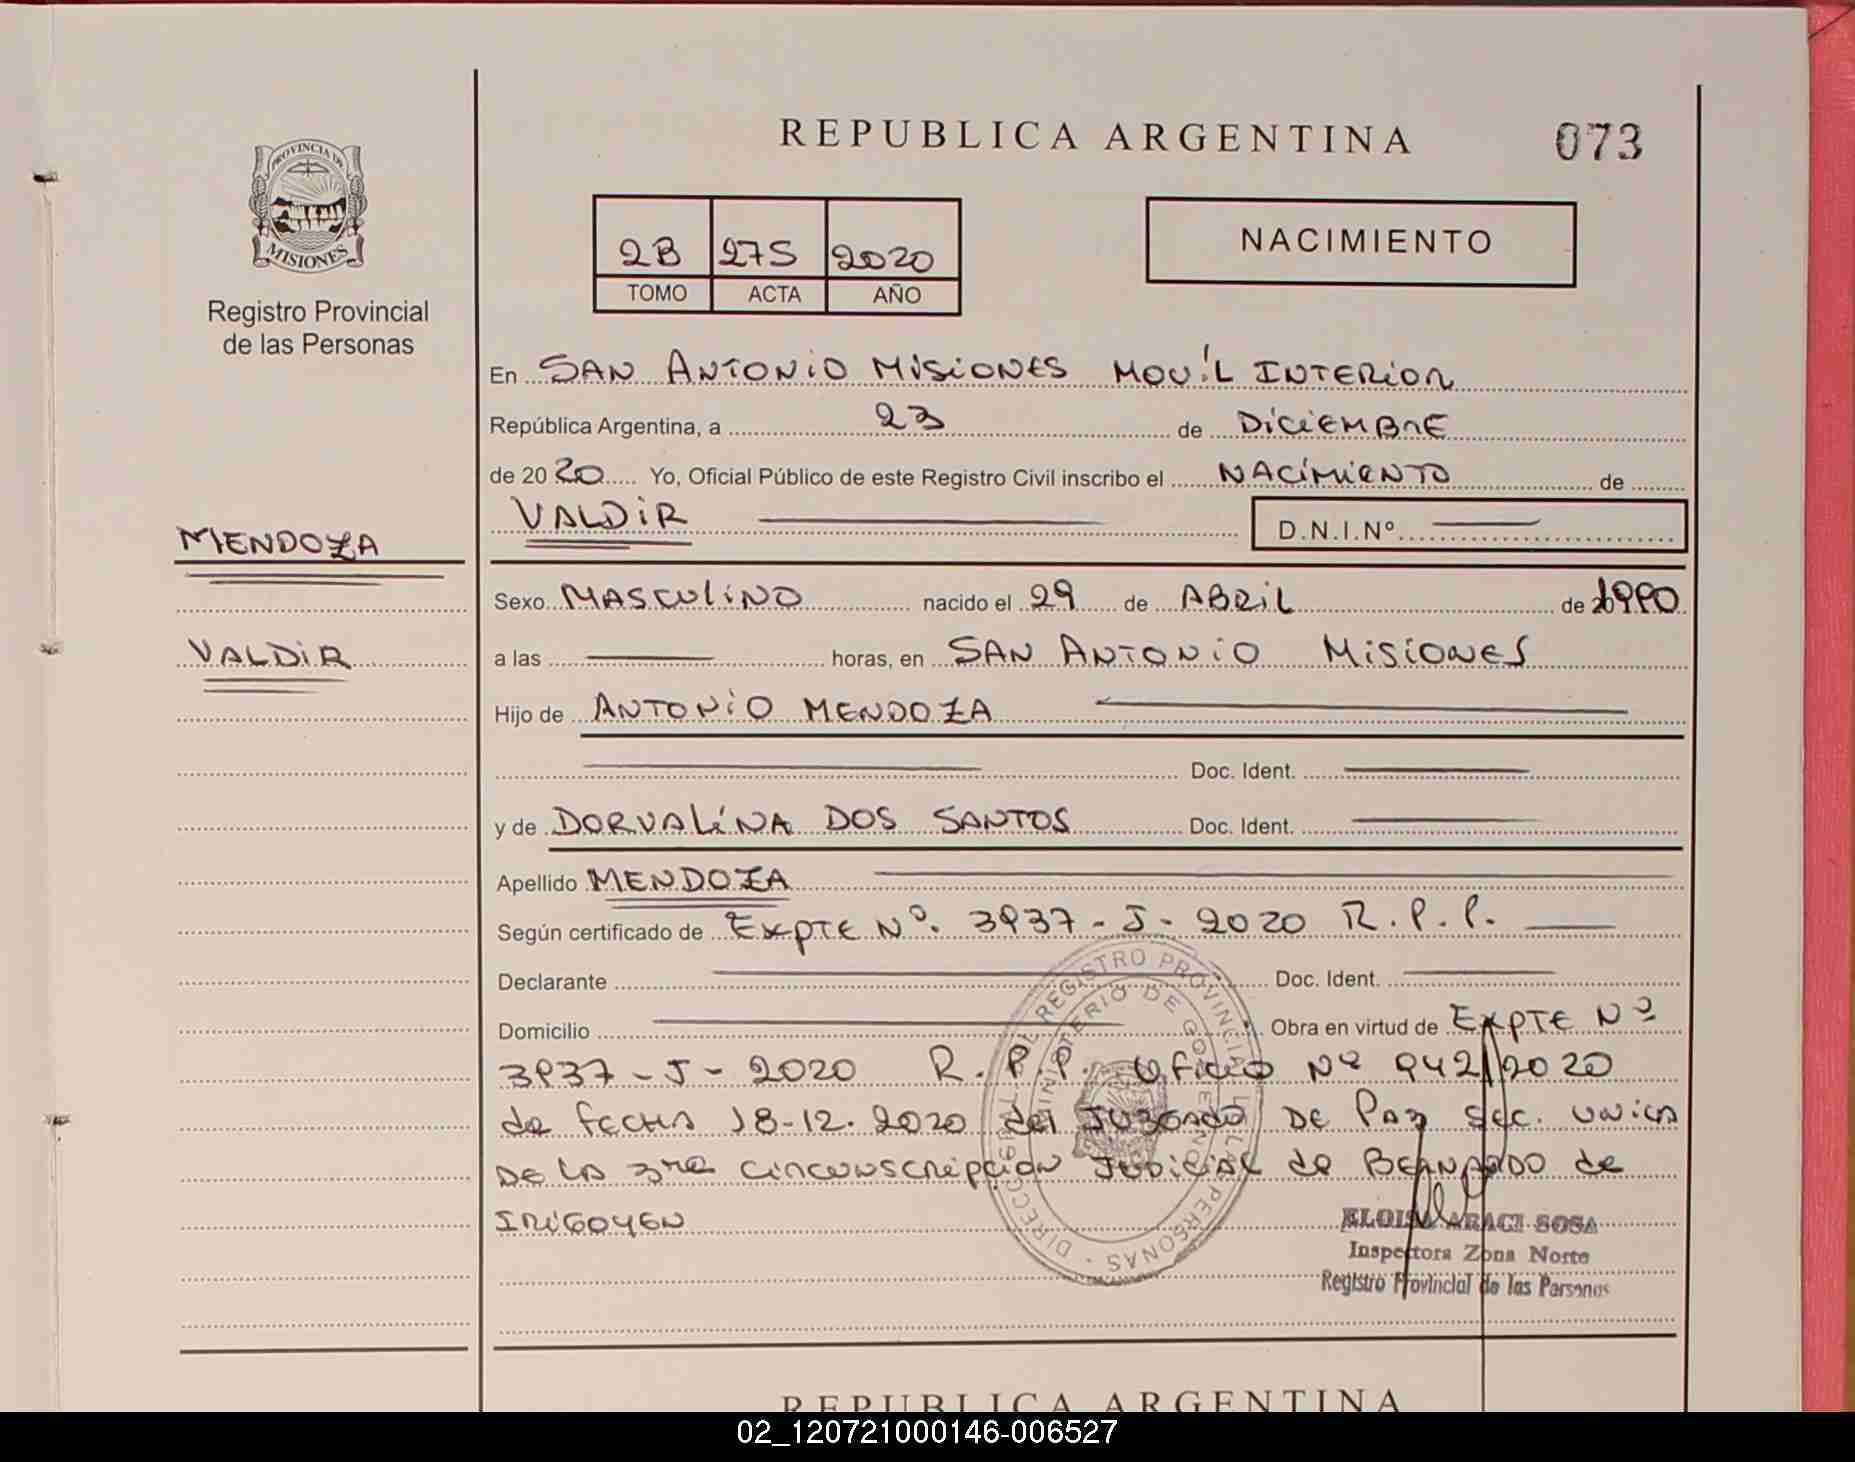 REPUBLICA ARGENTINA
073
PROVINCIA DE
MISIONES
Registro Provincial
de las Personas
2B 275 2020
TOMO ACTA AÑO
NACIMIENTO
En SAN ANTONIO MISIONES MOVIL INTERIOR
República Argentina, a 23 de DICIEMBRE
de 20 20 Yo, Oficial Público de este Registro Civil inscribo el NACIMIENTO de
VALDIR
D.N.I.Nº
MENDOZA
VALDIR
Sexo MASCULINO nacido el 29 de ABRIL de 1990
a las horas, en SAN ANTONIO MISIONES
Hijo de ANTONIO MENDOZA
Doc. Ident.
y de DORVALINA DOS SANTOS Doc. Ident.
Apellido MENDOZA
Según certificado de EXPTE Nº. 3937-J-2020 R.P.P.
Declarante Doc. Ident.
Domicilio Obra en virtud de EXPTE Nº
3937-J-2020 R.P.P. Oficio Nº 942/2020
de FECHA 18-12.2020 del JUZGADO DE PAZ SEC. UNICA
DE LA 3ra CIRCUNSCRIPCION JUDICIAL de BERNARDO de
IRIGOYEN
DIRECC. GRAL. DEL REGISTRO PROVINCIAL DE LAS PERSONAS
MINISTERIO DE GOBIERNO
ELOISA ARACI SOSA
Inspectora Zona Norte
Registro Provincial de las Personas
REPUBLICA ARGENTINA
02_120721000146-006527